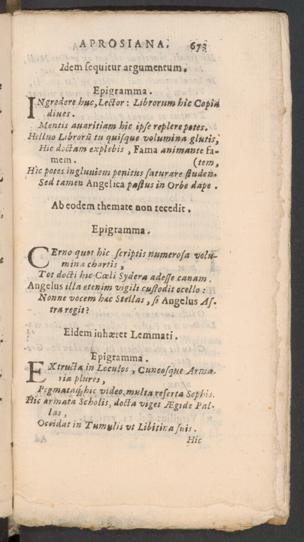 APROSIANA. 673
Idem sequitur argumentum.
Epigramma.
INgredere huc, Lector: Librorum hic Copia
diues.
Mentis auaritiam hic ipse replere potes.
Helluo Librorũ tu quisque volumina glutis,
Hic doctam explebis, Fama animante fa-
mem. (tem,
Hic potes ingluuiem penitus saturare studen-
Sed tamen Angelica pastus in Orbe dape.
Ab eodem themate non recedit.
Epigramma.
CErno quot hic scriptis numerosa volu-
mina chartis,
Tot docti hic Cœli Sydera adesse canam.
Angelus illa etenim vigili custodit ocello:
Nonne vocem hæc Stellas, si Angelus As-
tra regit?
Eidem inhæret Lemmati.
Epigramma.
EXtructa in Loculos, Cuneosque Arma-
ria plures,
Pegmataq; hic video, multa referta Sophis.
Hic armata Scholis, docta viget Ægide Pal-
las,
Occidat in Tumulis vt Libitina suis.
Hic